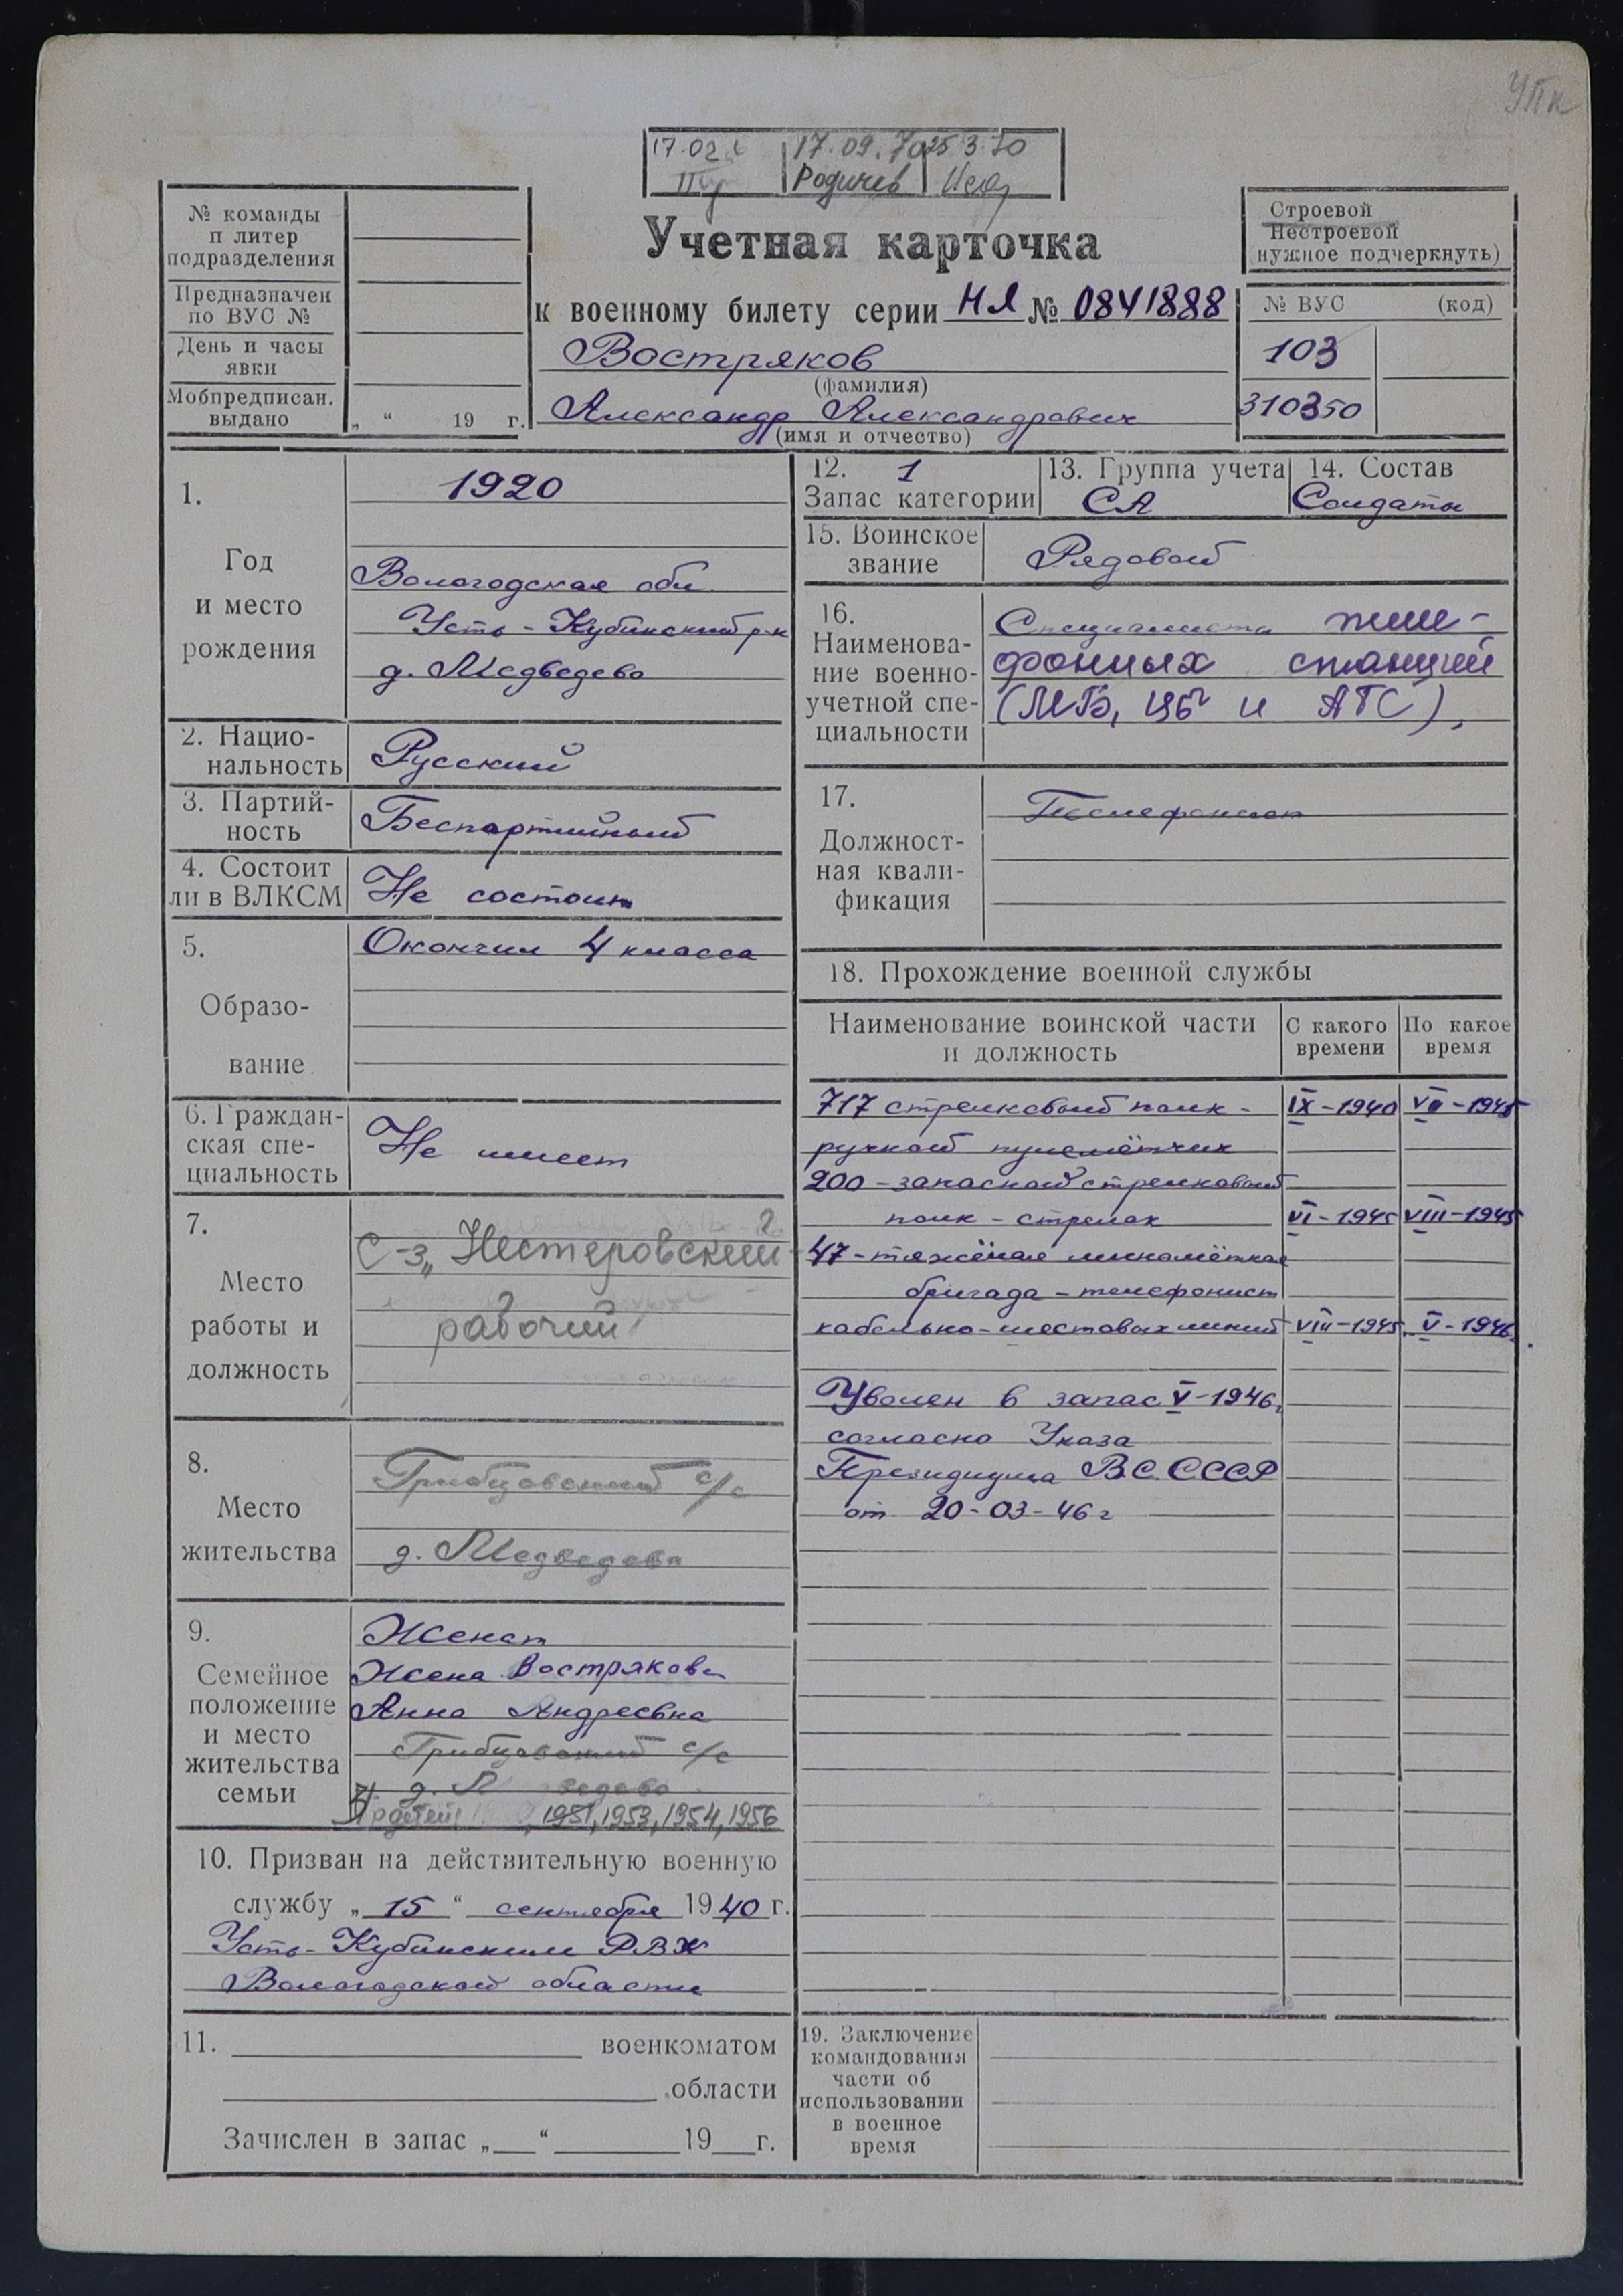 УПК
17.02 17.09.70 25.3.70
Родичев
№ команды
п литер
подразделения
Предназначен
по ВУС №
День и часы
явки
Мобпредписан.
выдано „ “ 19 г.
Учетная карточка
к военному билету серии НЯ № 0841888
Востряков
(фамилия)
Александр Александрович
(имя и отчество)
Строевой
Нестроевой
нужное подчеркнуть)
№ ВУС (код)
103
310350
1.
Год
и место
рождения
1920
Вологодская обл.
Усть-Кубинский р-н
д. Медведево
2. Нацио-
нальность
Русский
3. Партий-
ность
Беспартийный
4. Состоит
ли в ВЛКСМ
Не состоит
5.
Образо-
вание
Окончил 4 класса
6. Граждан-
ская спе-
циальность
Не имеет
7.
Место
работы и
должность
С-з „Нестеровский
рабочий
8.
Место
жительства
Грибцовский с/с
д. Медведево
9.
Семейное
положение
и место
жительства
семьи
Женат
Жена Вострякова
Анна Андреевна
Грибцовский с/с
д. Медведево
детей 1951, 1953, 1954, 1956
10. Призван на действительную военную
службу „ 15 “ сентября 1940 г.
Усть-Кубинским РВК
Вологодской области
11. военкоматом
области
Зачислен в запас „ “ 19 г.
12. 1
Запас категории
13. Группа учета
СА
14. Состав
Солдаты
15. Воинское
звание
Рядовой
16.
Наименова-
ние военно-
учетной спе-
циальности
Специалисты теле-
фонных станций
(МБ, ЦБ и АТС),
17.
Должност-
ная квали-
фикация
Телефонист
18. Прохождение военной службы
Наименование воинской части
и должность
С какого
времени
По какое
время
717 стрелковый полк - IX-1940 VI-1945
ручной пулемётчик
200 - запасной стрелковый
полк - стрелок VI-1945 VIII-1945
47 - тяжёлая миномётная
бригада - телефонист
кабельно-шестовых линий VIII-1945 V-1946
Уволен в запас V-1946
согласно Указа
Президиума ВС СССР
от 20-03-46 г
19. Заключение
командования
части об
использовании
в военное
время